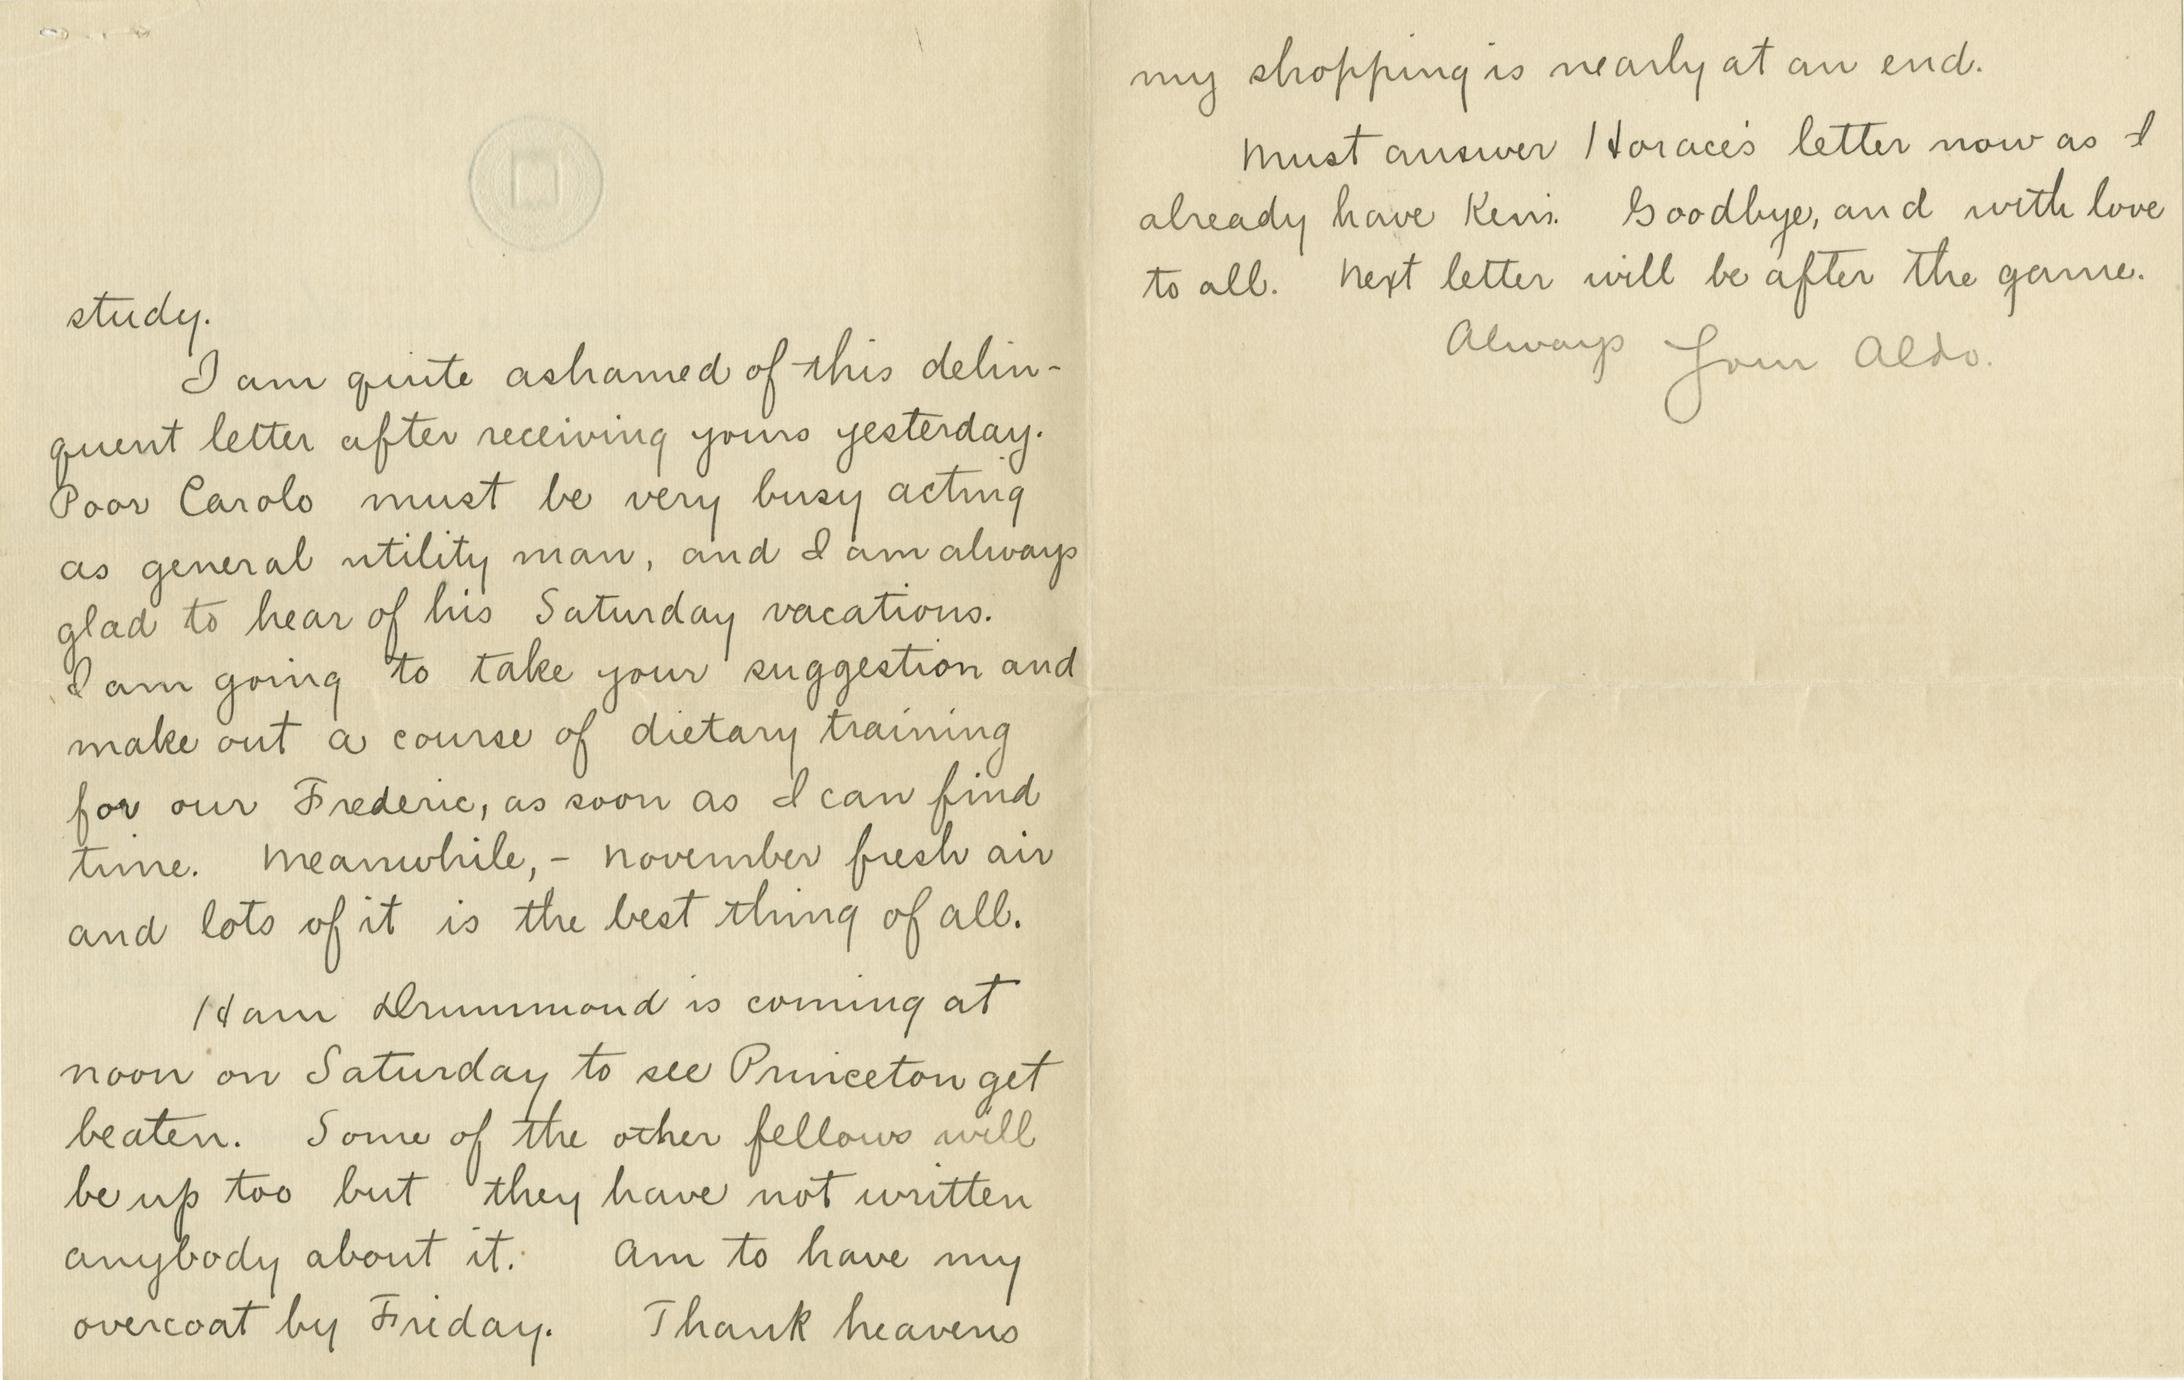 study.
I am quite ashamed of this delin-
quent letter after receiving yours yesterday.
Poor Carolo must be very busy acting
as general utility man, and I am always
glad to hear of his Saturday vacations.
I am going to take your suggestion and
make out a course of dietary training
for our Frederic, as soon as I can find
time. Meanwhile, - November fresh air
and lots of it is the best thing of all.
Ham Drummond is coming at
noon on Saturday to see Princeton get
beaten. Some of the other fellows will
be up too but they have not written
anybody about it. Am to have my
overcoat by Friday. Thank heavens
my shopping is nearly at an end.
Must answer Horace's letter now as I
already have Ken's. Goodbye, and with love
to all. Next letter will be after the game.
Always Your Aldo.